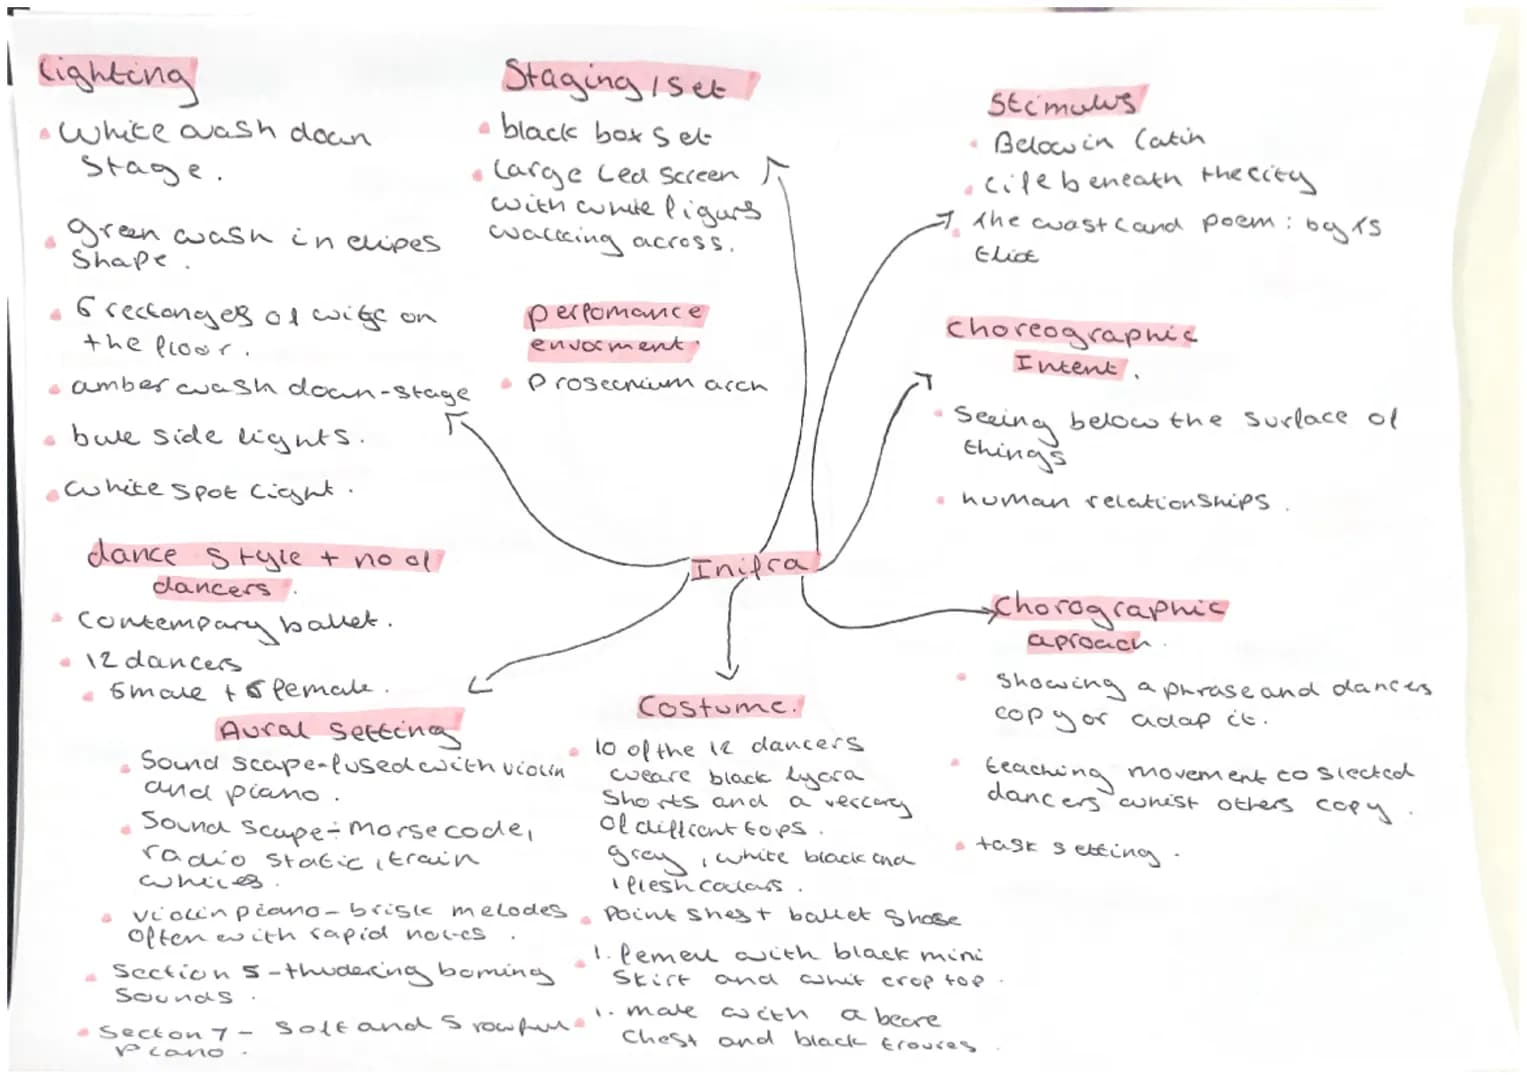 Lighting
White wash down
stage.
green wash in elipes
shape.
6 rectanges of on
the floor.
amber wash down-stage
bule side lights.
white spot light.
dance style + no of
dancers.
Contempary ballet.
12 dancers
6male + 6 female.
Aural Setting
Sound scape-fused with violin
and piano.
Sound scape - morse code,
radio static, train
violin piano - brisk melodes
often with rapid notes.
Section 5 - thudering boming
sounds.
Secton 7 - Soft and Srowful
Piano.
Staging / Set
black box set
large Led Screen
with white figurs
walking across.
perfomance
enviorment.
Proscenium arch
Inifra
Costume.
10 of the 12 dancers
weare black lycra
Shorts and a
of diffrent tops.
grey, white black and
flesh colors.
Point shes + ballet shose
1. femeil with black mini
Skirt and whit crop top.
1. male with a beare
Chest and black troures.
Stimulus
Below in latin
life beneath the city
the wast land poem: by ts
Eliot
choreographic
Intent.
Seeing below the surface of
things
human relationships.
Chorographic
aproach.
Showing a phrase and dancers
copy or adap it.
teaching movement to slected
dancers whist others copy.
task setting.